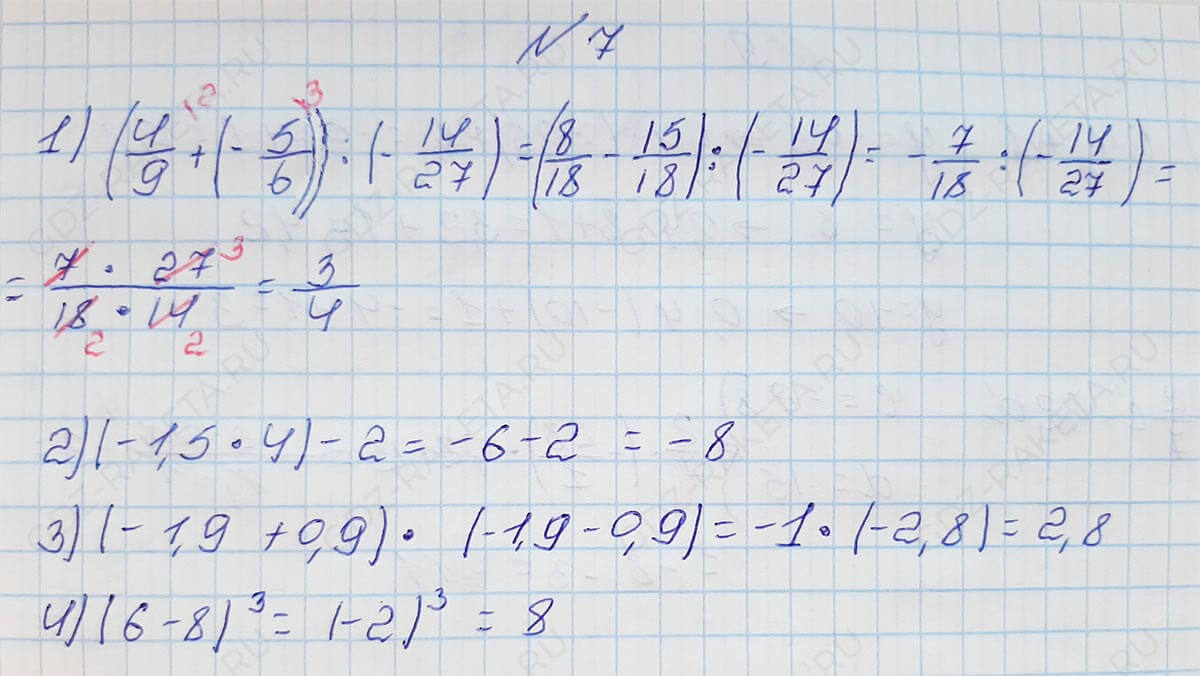 № 7
1) (4/9 + (- 5/6)) : (- 14/27) = (8/18 - 15/18) : (- 14/27) = - 7/18 : (- 14/27) =
= 7 · 27 3 / 18 2 · 14 2 = 3/4
2) (-1,5 · 4) - 2 = -6 - 2 = -8
3) (-1,9 + 0,9) · (-1,9 - 0,9) = -1 · (-2,8) = 2,8
4) (6 - 8)³ = (-2)³ = 8
GDZ-RAKETA.RU